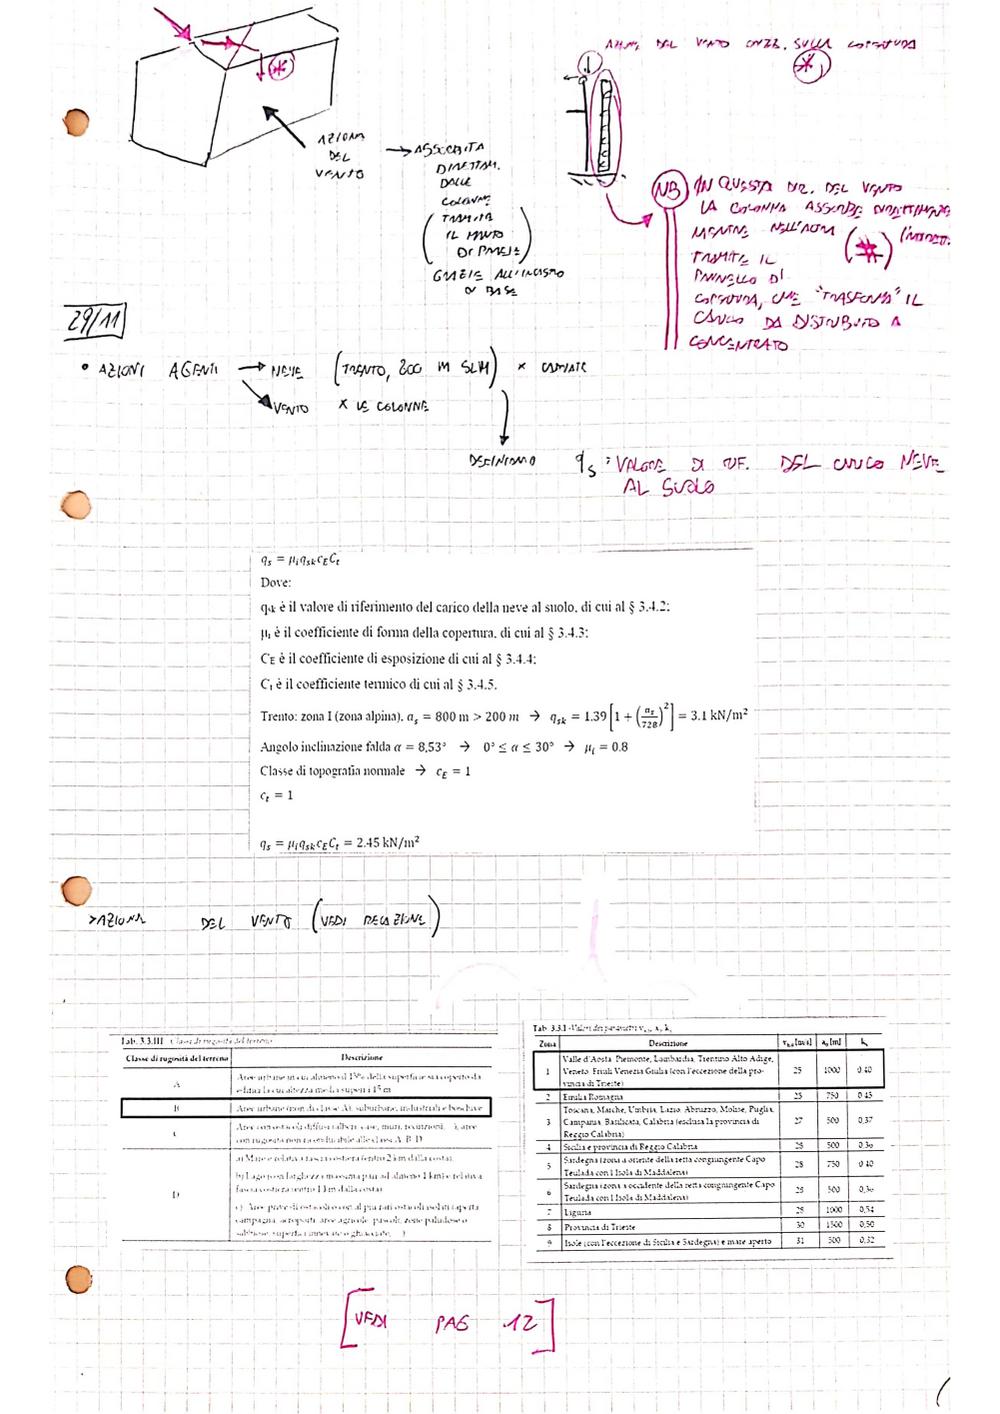 AZIONE DEL VENTO ORIZZ. SULLA COPERTURA
AZIONE
DEL
VENTO
ASSORBITA
DIRETTAM.
DALLE
COLONNE
(TRAMITE
IL MURO
DI PARETE)
GRAZIE ALL'INCASTRO
DI BASE
NB
IN QUESTA DIR. DEL VENTO
LA COLONNA ASSORBE DIRETTAMENTE
MENTRE NELL'ALTRA
TRAMITE IL
PANNELLO DI
COPERTURA, CHE "TRASFORMA" IL
CARICO DA DISTRIBUITO A
CONCENTRATO
29/11
• AZIONI AGENTI → NEVE (TRENTO, 800 M SLM) x
VENTO x LE COLONNE
DEFINIAMO qs : VALORE DI RIF. DEL CARICO NEVE
AL SUOLO
qs = μi qsk cE Ct
Dove:
qsk è il valore di riferimento del carico della neve al suolo, di cui al § 3.4.2;
μi è il coefficiente di forma della copertura, di cui al § 3.4.3;
CE è il coefficiente di esposizione di cui al § 3.4.4;
Ct è il coefficiente termico di cui al § 3.4.5.
Trento: zona I (zona alpina), as = 800 m > 200 m → qsk = 1.39 [1 + (as/728)²] = 3.1 kN/m²
Angolo inclinazione falda α = 8,53° → 0° ≤ α ≤ 30° → μi = 0.8
Classe di topografia normale → cE = 1
ct = 1
qs = μi qsk cE Ct = 2.45 kN/m²
> AZIONE DEL VENTO (VEDI RELAZIONE)
Tab. 3.3.III - Classi di rugosità del terreno
Classe di rugosità del terreno Descrizione
A Aree urbane in cui almeno il 15% della superficie sia coperto da
edifici la cui altezza media superi i 15 m
B Aree urbane (non di classe A), suburbane, industriali e boschive
C Aree con ostacoli diffusi (alberi, case, muri, recinzioni, ...), aree
con rugosità non riconducibile alle classi A, B, D
D a) Mare e relativa fascia costiera (entro 2 km dalla costa);
b) Lago (con larghezza massima pari ad almeno 1 km) e relativa
fascia costiera (entro 1 km dalla costa)
c) Aree prive di ostacoli o con al più rari ostacoli isolati (aperta
campagna, aeroporti, aree agricole, pascoli, zone paludose o
sabbiose, superfici innevate o ghiacciate, ...)
Tab. 3.3.I - Valori dei parametri vb,0, a0, ks
Zona Descrizione vb,0 [m/s] a0 [m] ks
1 Valle d'Aosta, Piemonte, Lombardia, Trentino Alto Adige,
Veneto, Friuli Venezia Giulia (con l'eccezione della pro-
vincia di Trieste) 25 1000 0,40
2 Emilia Romagna 25 750 0,45
3 Toscana, Marche, Umbria, Lazio, Abruzzo, Molise, Puglia,
Campania, Basilicata, Calabria (esclusa la provincia di
Reggio Calabria) 27 500 0,37
4 Sicilia e provincia di Reggio Calabria 28 500 0,36
5 Sardegna (zona a oriente della retta congiungente Capo
Teulada con l'Isola di Maddalena) 28 750 0,40
6 Sardegna (zona a occidente della retta congiungente Capo
Teulada con l'Isola di Maddalena) 28 500 0,36
7 Liguria 28 1000 0,54
8 Provincia di Trieste 30 1500 0,50
9 Isole (con l'eccezione di Sicilia e Sardegna) e mare aperto 31 500 0,32
[VEDI PAG 12]